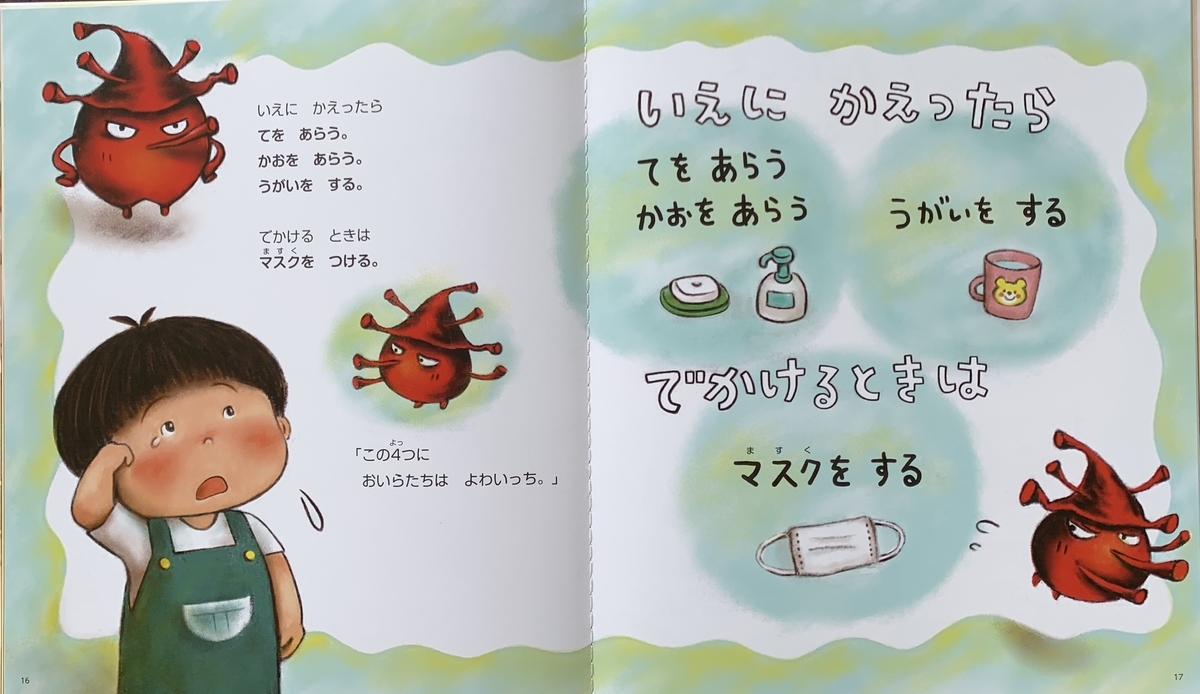 いえに　かえったら
てを　あらう。
かおを　あらう。
うがいを　する。
でかける　ときは
ますく
マスクを　つける。
よっ
「この4つに
おいらたちは　よわいっち。」
16
いえに　かえったら
てを　あらう
かおを　あらう
うがいを　する
でかけるときは
ますく
マスクを　する
17